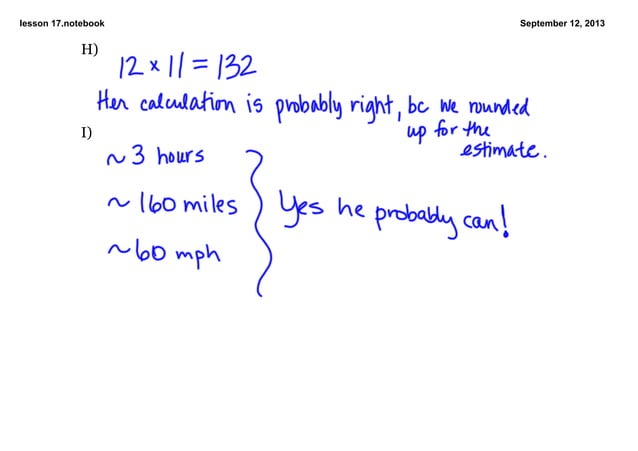 lesson 17.notebook
September 12, 2013
H)
12 × 11 = 132
Her calculation is probably right, bc we rounded
up for the
estimate.
I)
~ 3 hours
~ 160 miles
~ 60 mph
Yes he probably can!